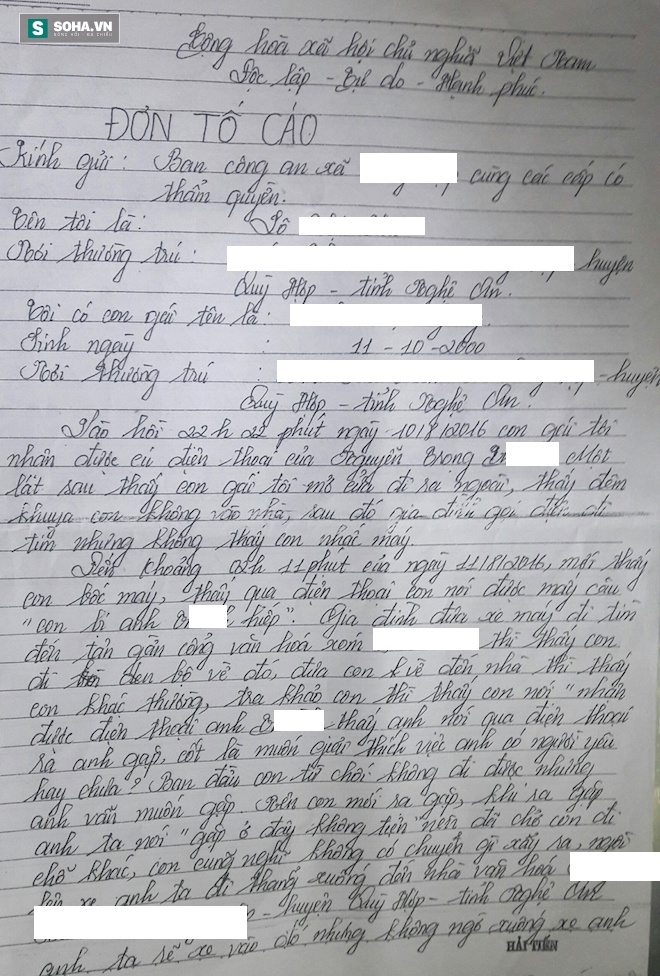 SOHA.VN
Cộng hoà xã hội chủ nghĩa Việt Nam
Độc lập - Tự do - Hạnh phúc.
ĐƠN TỐ CÁO
Kính gửi: Ban công an xã cùng các cấp có
thẩm quyền.
Tên tôi là: Lô
Nơi thường trú: huyện
Quỳ Hợp - tỉnh Nghệ An.
Tôi có con gái tên là:
Sinh ngày : 11 - 10 - 2000
Nơi thường trú : - huyện
Quỳ Hợp - tỉnh Nghệ An.
Vào hồi 22h 22 phút ngày 10/8/2016 con gái tôi
nhận được cú điện thoại của Nguyễn Trọng Một
lát sau thấy con gái tôi mở cửa đi ra ngoài, thấy đêm
khuya con không vào nhà, sau đó gia đình gọi điện đi
tìm nhưng không thấy con nhấc máy.
Đến khoảng 02h 11 phút của ngày 11/8/2016, mới thấy
con bốc máy, thấy qua điện thoại con nói được mấy câu
"con bị anh hiếp". Gia đình đưa xe máy đi tìm
đến tận gần cổng văn hoá xóm thì thấy con
đi bộ về đó, đưa con về đến nhà thì thấy
con khác thường, tra khảo con thì thấy con nói "nhận
được điện thoại anh thấy anh nói qua điện thoại
ra anh gặp, cốt là muốn giải thích việc anh có người yêu
hay chưa? Ban đầu con từ chối không đi được nhưng
anh vẫn muốn gặp. Nên con mới ra gặp, khi ra gặp
anh ta nói "gặp ở đây không tiện" nên đã chở con đi
chỗ khác, con cũng nghĩ không có chuyện gì xẩy ra, ngồi
lên xe anh ta đi thẳng xuống đến nhà văn hoá
- huyện Quỳ Hợp - tỉnh Nghệ An
anh ta rẽ xe vào đó nhưng không ngõ xuống xe anh
HẢI TIẾN